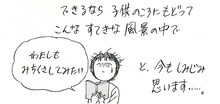 できるなら 子供のころにもどって
こんな すてきな 風景の中で
わたしも
みちくさしてみたい!!
と、今もしみじみ
思います……。